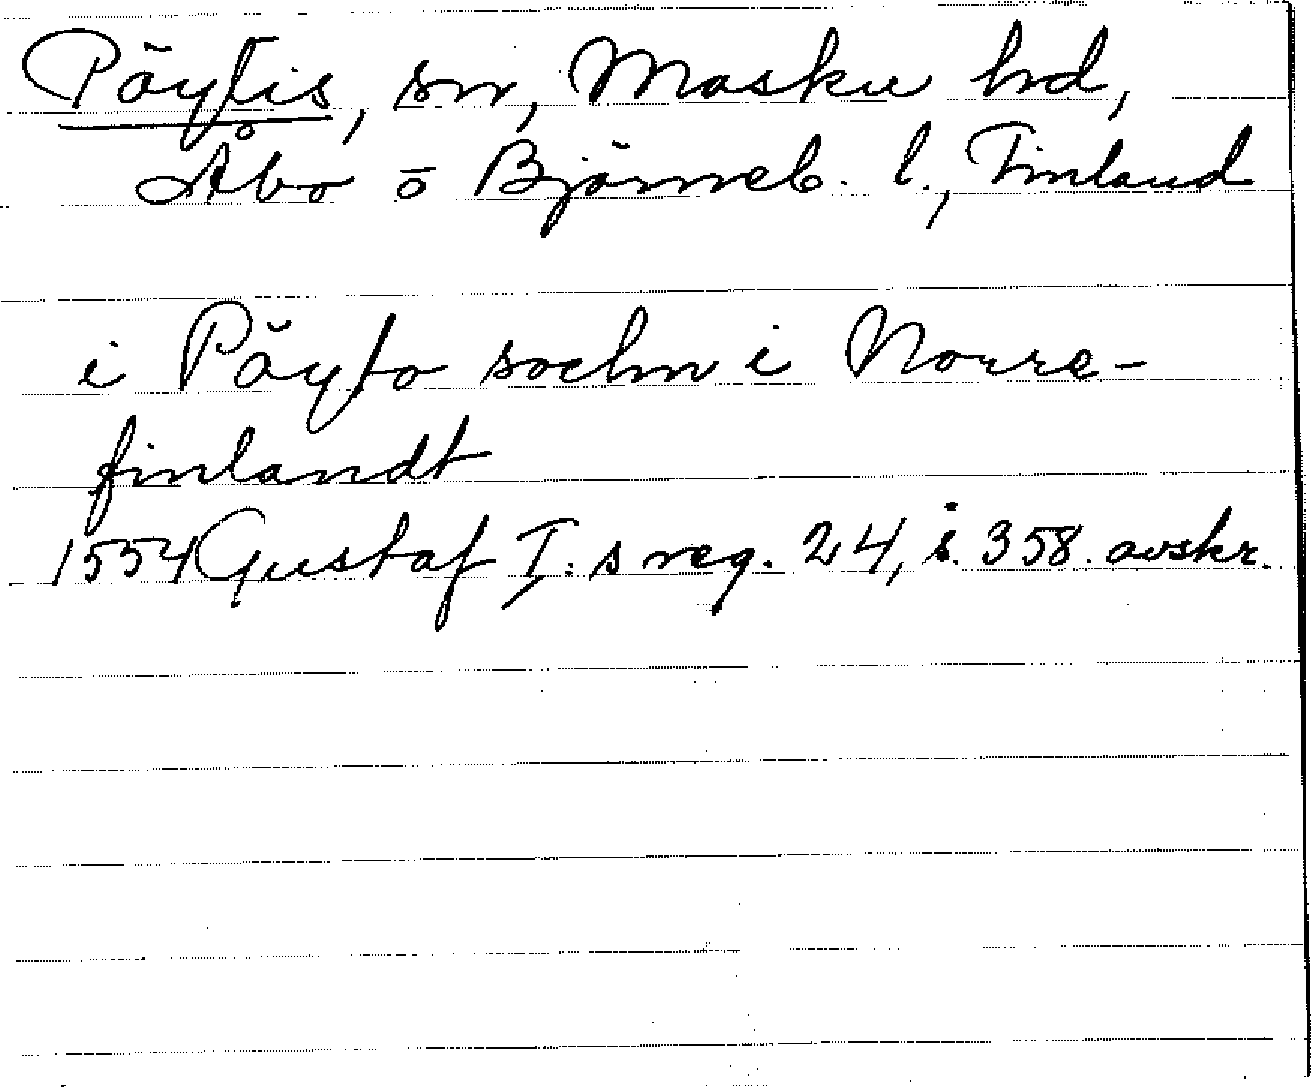 Pöytis, sn, Masku hd,
Åbo o Björneb. l., Finland
i Pöyto sochn i Norre-
finlandt
1554 Gustaf I:s reg. 24, s. 358. avskr.